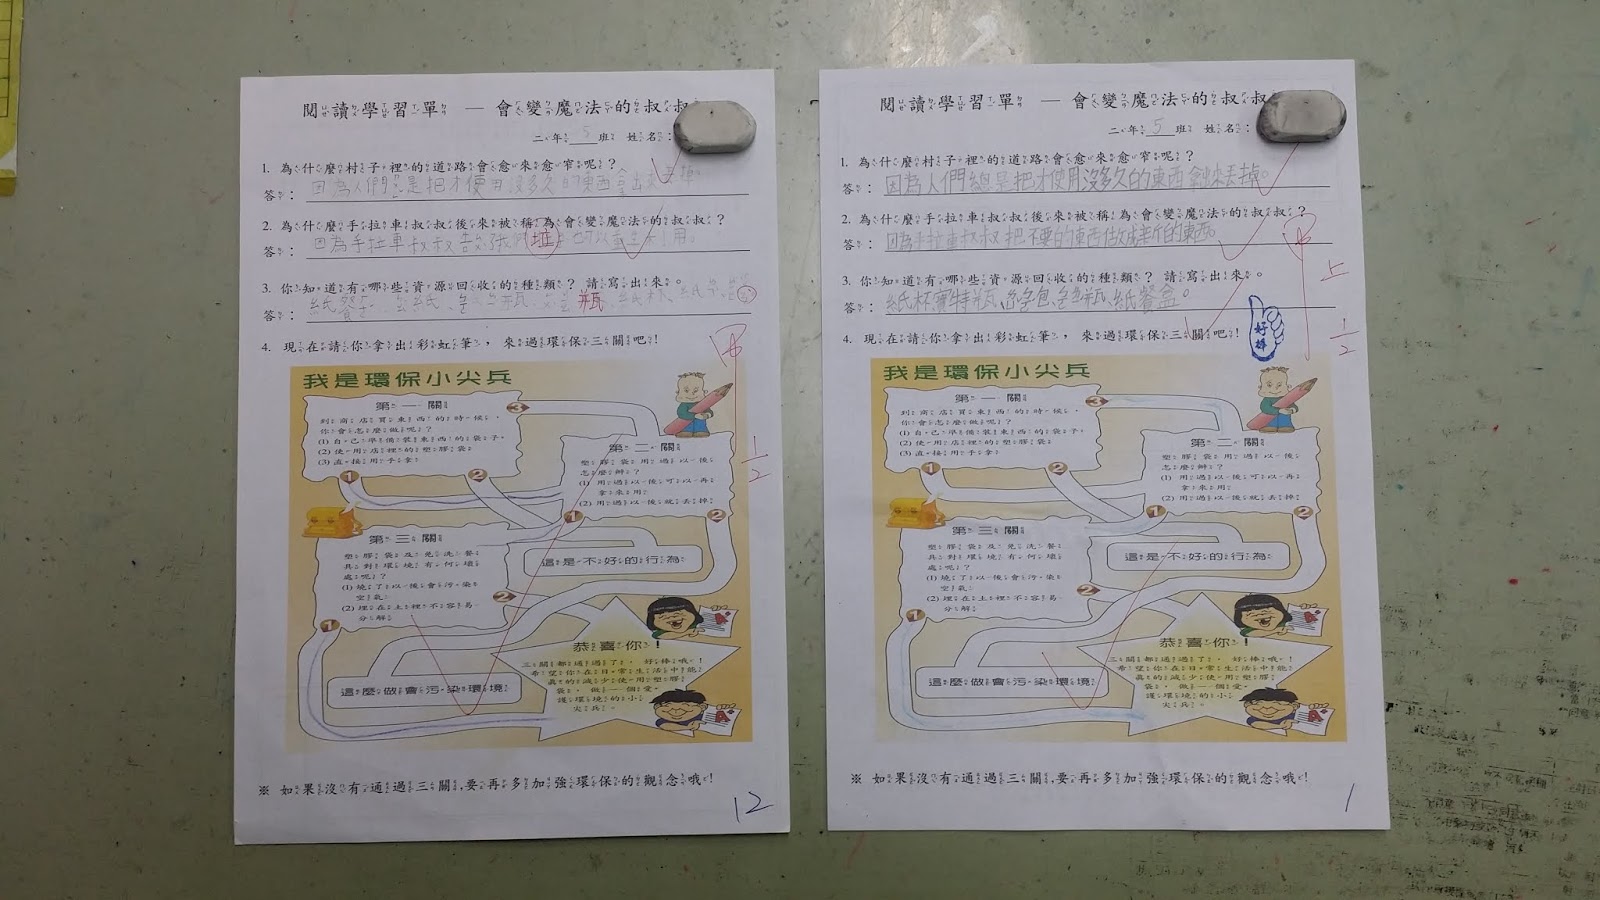 閱讀學習單 — 會變魔法的叔叔
二年 5 班 姓名：
1. 為什麼村子裡的道路會愈來愈窄呢？
答： 因為人們總是把才使用沒多久的東西拿出來丟掉。
2. 為什麼手拉車叔叔後來被稱為會變魔法的叔叔？
答： 因為手拉車叔叔
3. 你知道有哪些資源回收的種類？請寫出來。
答： 紙餐
瓶
4. 現在請你拿出彩虹筆，來過環保三關吧！
甲
1/2
我是環保小尖兵
第一關
到商店買東西的時候，
你會怎麼做呢？
(1) 自己準備裝東西的袋子。
(2) 使用店裡的塑膠袋
(3) 直接用手拿
3
1
2
第二關
塑膠袋用過以後
怎麼辦？
(1) 用過以後可以再
拿來用
(2) 用過以後就丟掉
1
2
第三關
塑膠袋及免洗餐
具對環境有何壞
處呢？
(1) 燒了以後會污染
空氣
(2) 埋在土裡不容易
分解
2
1
這是不好的行為
這麼做會污染環境
恭喜你！
三關都通過了，好棒哦！
希望你在日常生活中能
真的減少使用塑膠
袋，做一個愛
護環境的小
尖兵。
※ 如果沒有通過三關,要再多加強環保的觀念哦！
12
閱讀學習單 — 會變魔法的叔叔
二年 5 班 姓名：
1. 為什麼村子裡的道路會愈來愈窄呢？
答： 因為人們總是把才使用沒多久的東西拿出來丟掉。
2. 為什麼手拉車叔叔後來被稱為會變魔法的叔叔？
答： 因為手拉車叔叔把不要的東西做成新的東西。
3. 你知道有哪些資源回收的種類？請寫出來。
答： 紙杯、寶特瓶、鋁箔包、紙餐盒。
甲上
1/2
好棒
4. 現在請你拿出彩虹筆，來過環保三關吧！
我是環保小尖兵
第一關
到商店買東西的時候，
你會怎麼做呢？
(1) 自己準備裝東西的袋子。
(2) 使用店裡的塑膠袋
(3) 直接用手拿
3
1
2
第二關
塑膠袋用過以後
怎麼辦？
(1) 用過以後可以再
拿來用
(2) 用過以後就丟掉
1
2
第三關
塑膠袋及免洗餐
具對環境有何壞
處呢？
(1) 燒了以後會污染
空氣
(2) 埋在土裡不容易
分解
2
1
這是不好的行為
這麼做會污染環境
恭喜你！
三關都通過了，好棒哦！
希望你在日常生活中能
真的減少使用塑膠
袋，做一個愛
護環境的小
尖兵。
※ 如果沒有通過三關,要再多加強環保的觀念哦！
1